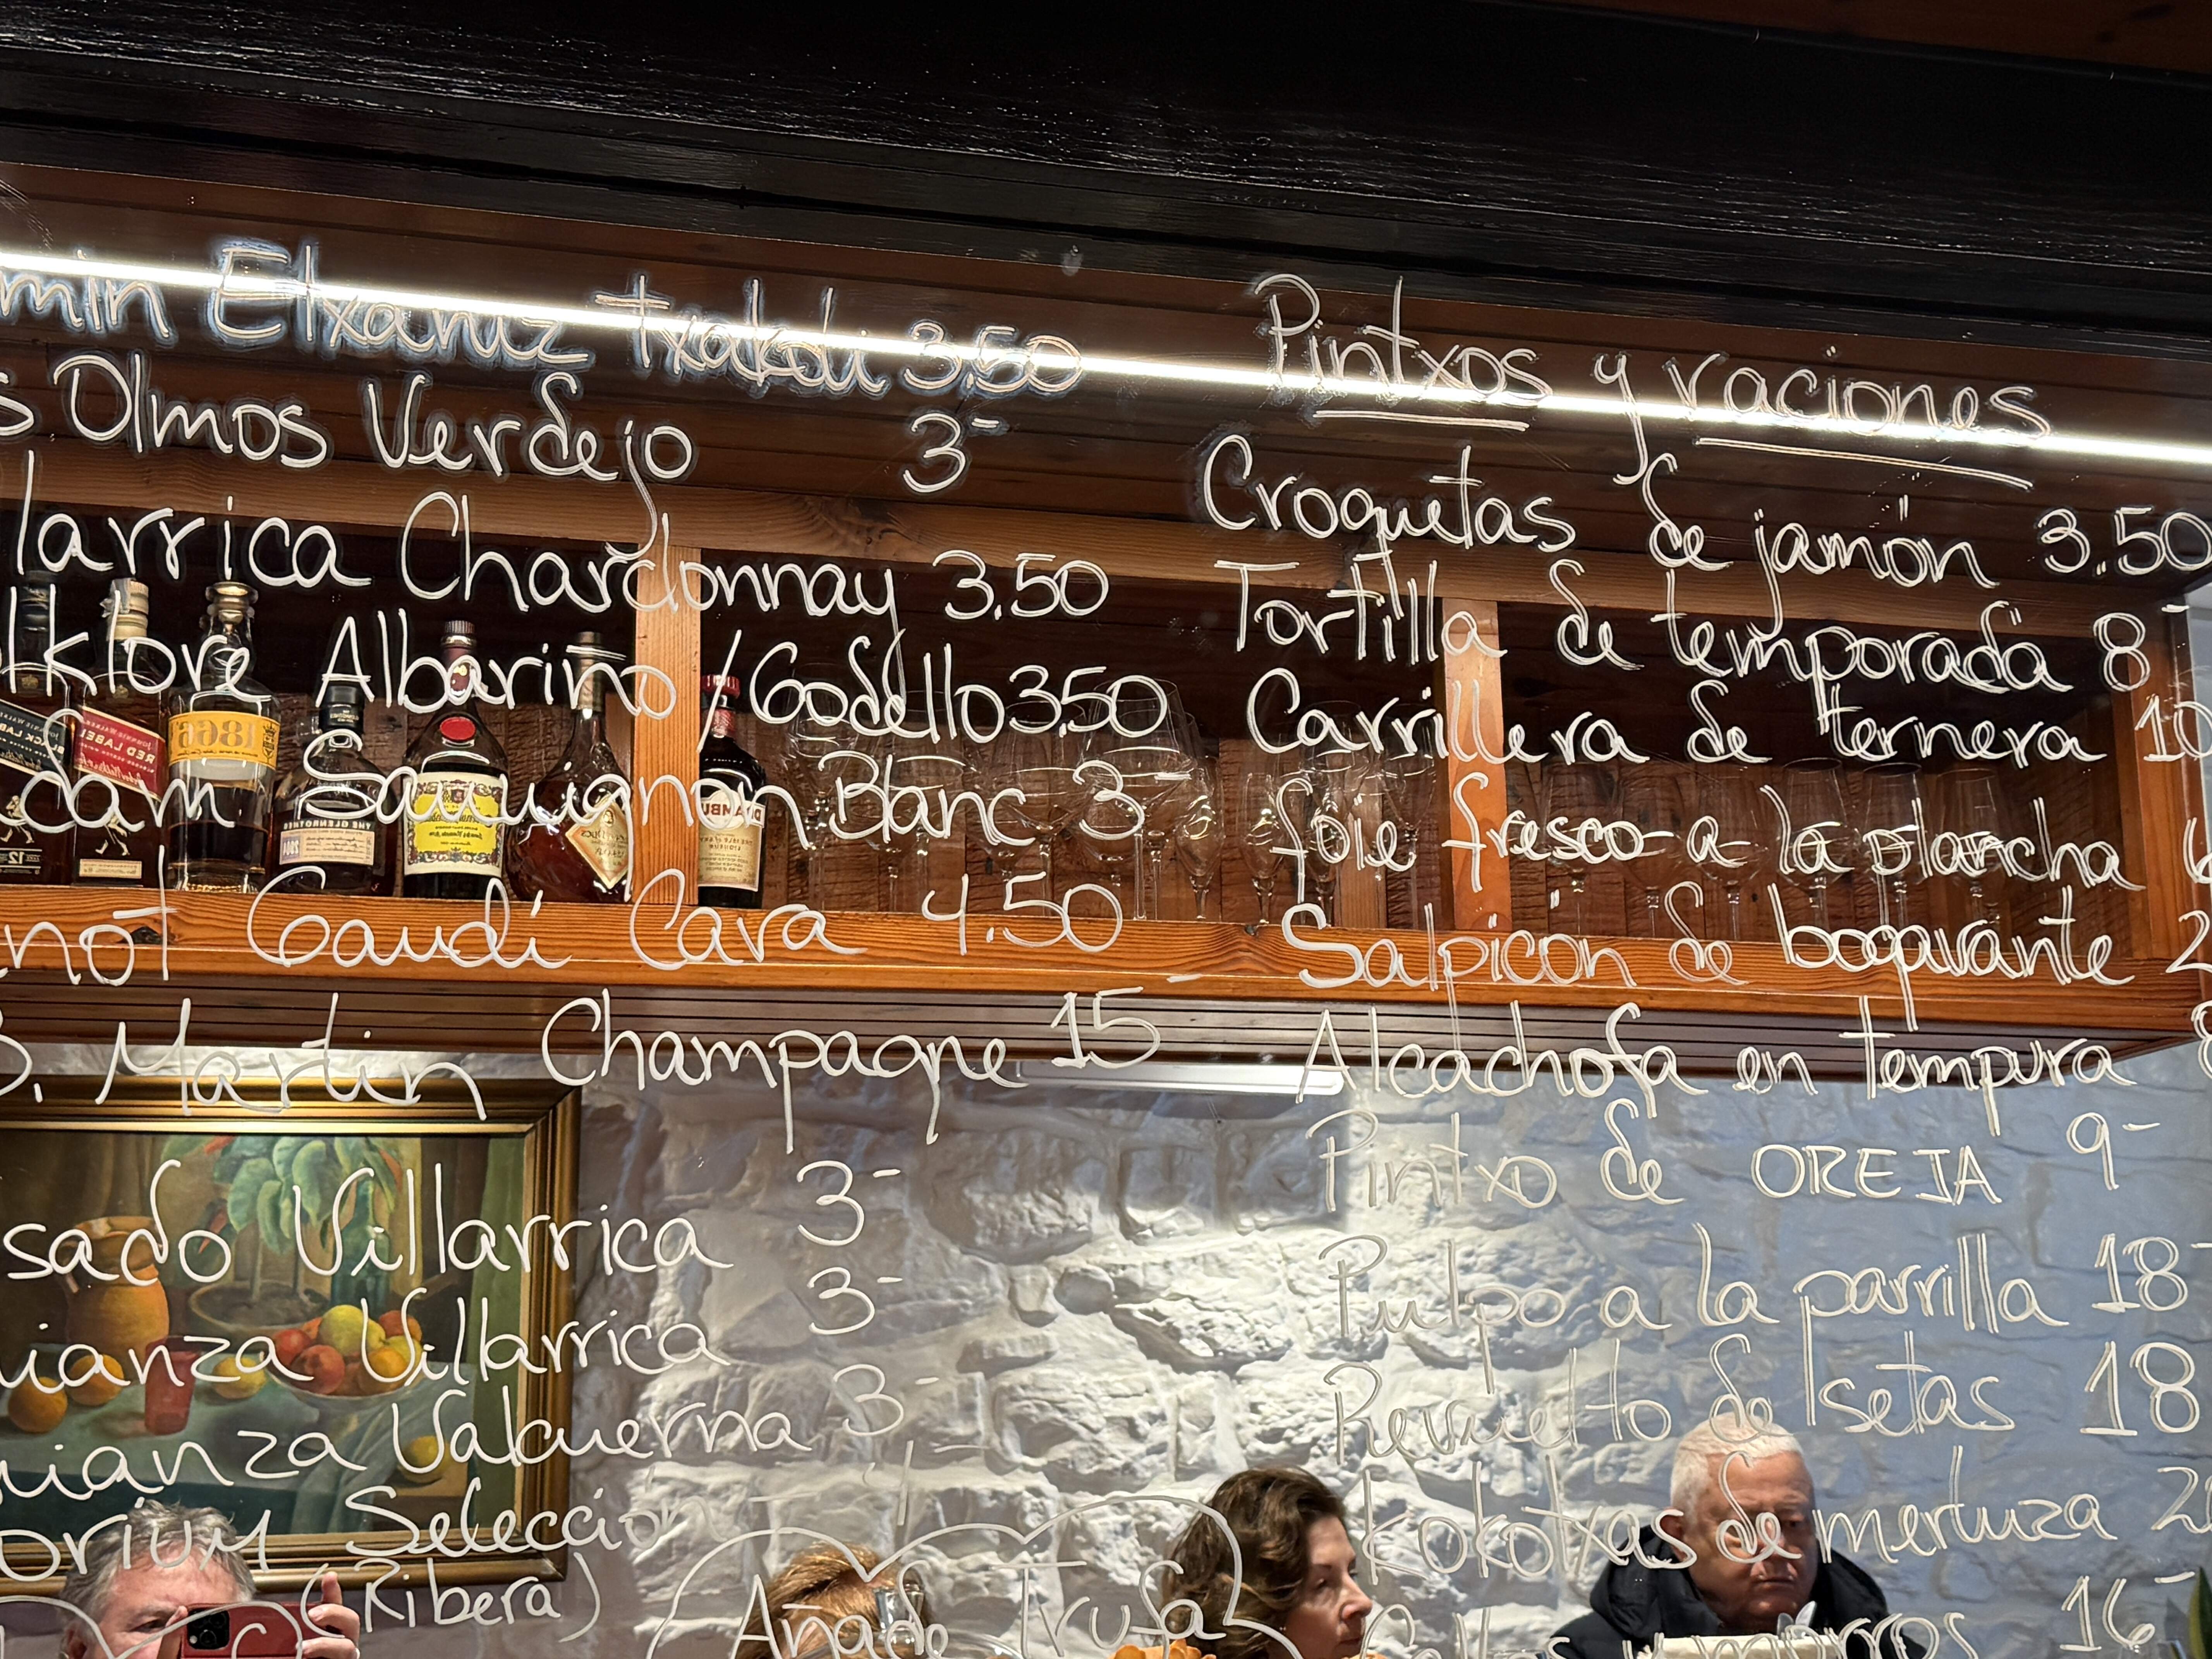 Etxaniz txakoli 3,50
Olmos Verdejo 3-
larrica Chardonnay 3.50
lklore Albariño / Godello 3,50
dam Sauvignon Blanc 3-
not Gaudí Cava 4.50
B. Martin Champagne 15-
sado Villarrica 3-
ianza Villarrica 3-
ianza Valcuerna 3-
orium Selección
(Ribera)
Añade Trufa
Pintxos y raciones
Croquetas de jamón 3.50
Tortilla de temporada 8-
Carrillera de ternera 10
foie fresco a la plancha
Salpicón de bogavante 2
Alcachofa en tempura 8
Pintxo de OREJA 9-
Pulpo a la parrilla 18-
Revuelto de setas 18
Kokotxas de merluza 2
Callos y morros 16-
1866
RED LABEL
12
THE GLENROTHES